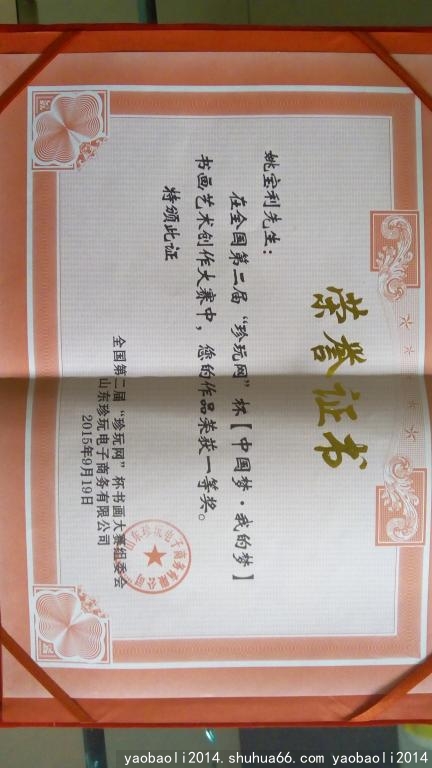 荣誉证书
姚宝利先生：
在全国第二届“珍玩网”杯【中国梦·我的梦】
书画艺术创作大赛中，您的作品荣获一等奖。
特颁此证
全国第二届“珍玩网”杯书画大赛组委会
山东珍玩电子商务有限公司
2015年9月19日
山东珍玩电子商务有限公司
yaobaoli2014.shuhua66.com yaobaoli2014